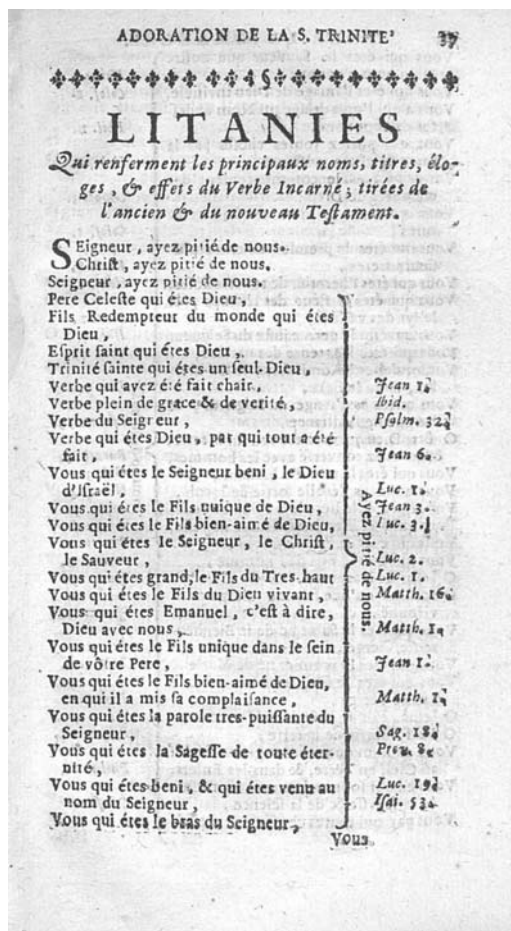 ADORATION DE LA S. TRINITE' 37
LITANIES
Qui renferment les principaux noms, titres, élo-
ges, & effets du Verbe Incarné; tirées de
l'ancien & du nouveau Teſtament.
SEigneur, ayez pitié de nous.
Chriſt, ayez pitié de nous.
Seigneur, ayez pitié de nous.
Pere Celeſte qui étes Dieu,
Fils Redempteur du monde qui étes
Dieu,
Eſprit ſaint qui étes Dieu,
Trinité ſainte qui étes un ſeul Dieu,
Verbe qui avez été fait chair, Jean 1.
Verbe plein de grace & de verité, Ibid.
Verbe du Seigneur, Pſalm. 32.
Verbe qui étes Dieu, par qui tout a été
fait, Jean 6.
Vous qui étes le Seigneur beni, le Dieu
d'Iſraël, Luc. 1.
Vous qui étes le Fils unique de Dieu, Jean 3.
Vous qui étes le Fils bien-aimé de Dieu, Luc. 3.
Vous qui étes le Seigneur, le Chriſt,
le Sauveur, Luc. 2.
Vous qui étes grand, le Fils du Tres-haut Luc. 1.
Vous qui étes le Fils du Dieu vivant, Matth. 16.
Vous qui étes Emanuel, c'eſt à dire,
Dieu avec nous, Matth. 1.
Vous qui étes le Fils unique dans le ſein
de vôtre Pere, Jean 1.
Vous qui étes le Fils bien-aimé de Dieu,
en qui il a mis ſa complaiſance, Matth. 1
Vous qui étes la parole tres-puiſſante du
Seigneur, Sag. 18.
Vous qui étes la Sageſſe de toute éter- Prov. 8.
nité,
Vous qui étes beni, & qui étes venu au Luc. 19.
nom du Seigneur, Iſai. 53.
Vous qui étes le bras du Seigneur,
Ayez pitié de nous.
Vous